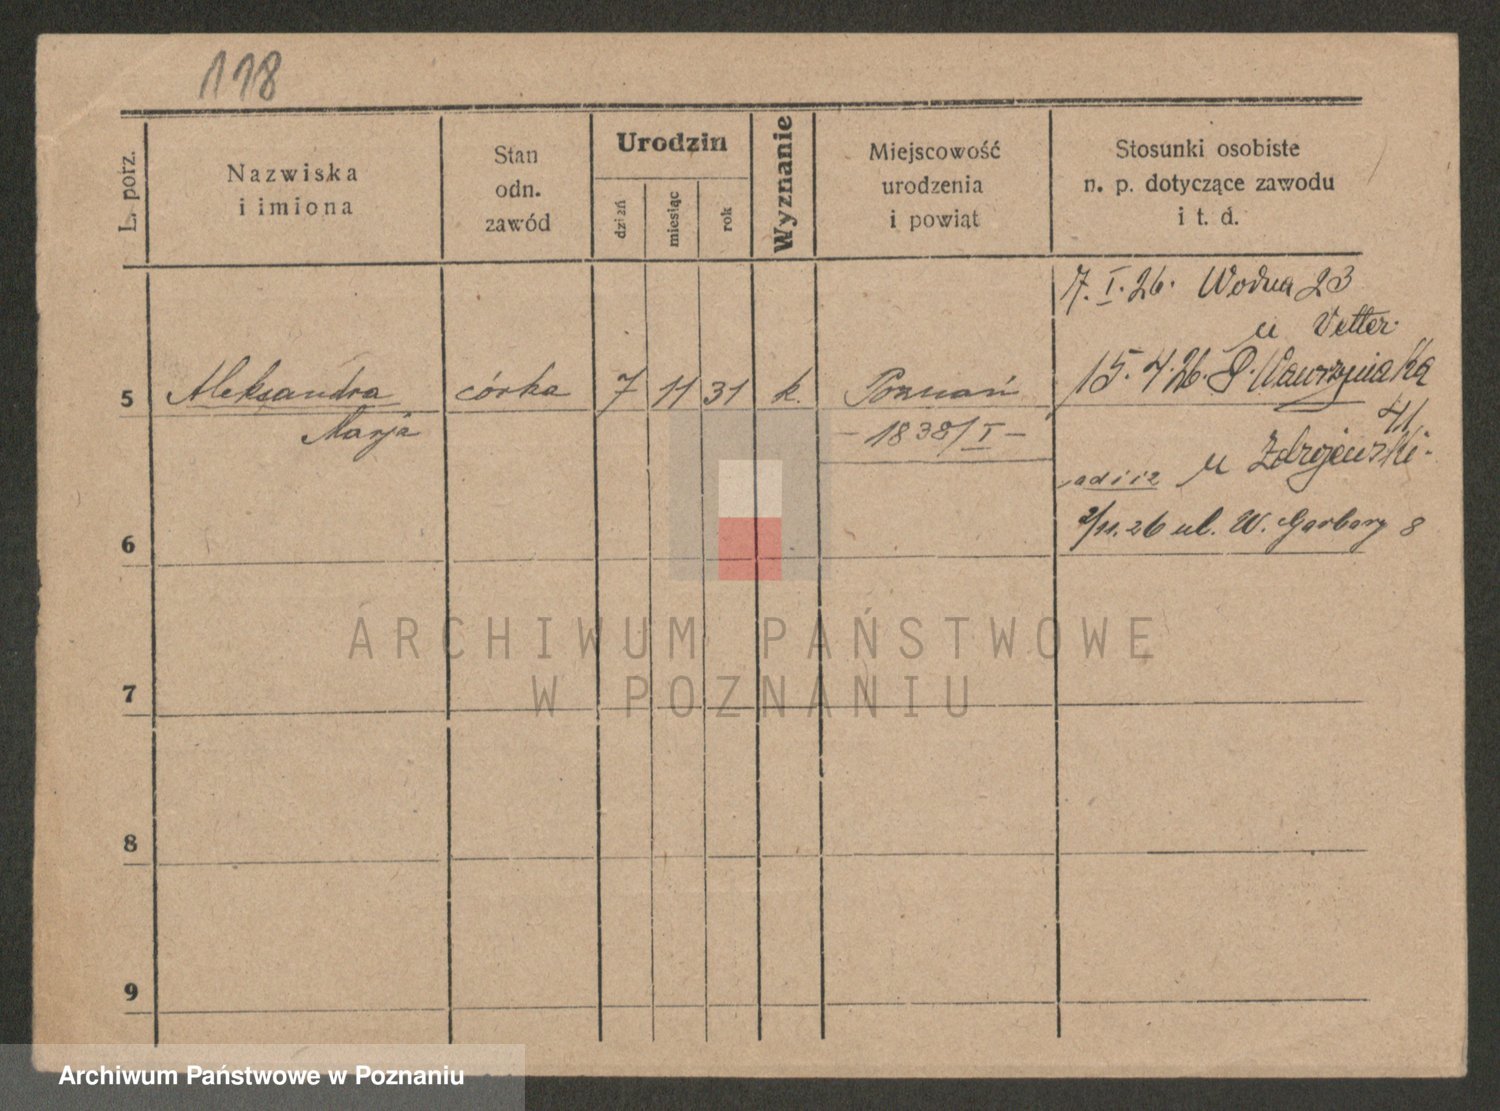 118
L. porz.
Nazwiska
i imiona
Stan
odn.
zawód
Urodzin
dzień
miesiąc
rok
Wyznanie
Miejscowość
urodzenia
i powiat
Stosunki osobiste
n. p. dotyczące zawodu
i t. d.
7. I. 26. Wodna 23
u Vetter.
5 Aleksandra córka 7 11 31 k. Poznań
Marja
- 1838/I -
15. 4. 26. Wawrzyniaka
41
u Zdrojewski.
2/11. 26 ul. W. Garbary 8
6
7
8
9
ARCHIWUM PAŃSTWOWE
W POZNANIU
Archiwum Państwowe w Poznaniu